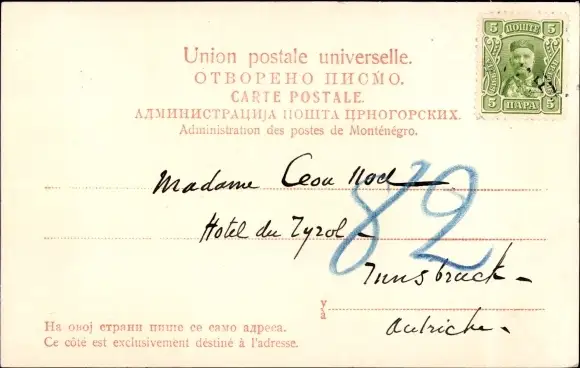 5 ПОШТЕ 5
5 ПАРА 5
Union postale universelle.
ОТВОРЕНО ПИСМО.
CARTE POSTALE.
АДМИНИСТРАЦИЈА ПОШТА ЦРНОГОРСКИХ.
Administration des postes de Monténégro.
Madame
Hotel du Tyrol -
82
Innsbruck -
У
à
Autriche -
На овој страни пише се само адреса.
Ce côté est exclusivement déstiné à l'adresse.